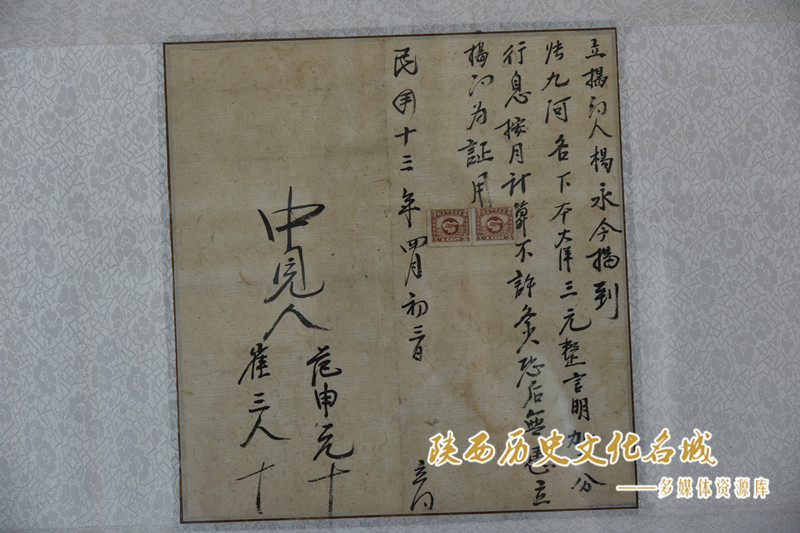 立揭约人楊永今揭到
九河名下本大洋三元整言明加 分
行息按月计算不許 恐后無憑立
揭约为証用
民国十三年四月初三日 立约
中見人
范申元十
崔三人十
陕西历史文化名城
——多媒体资源库